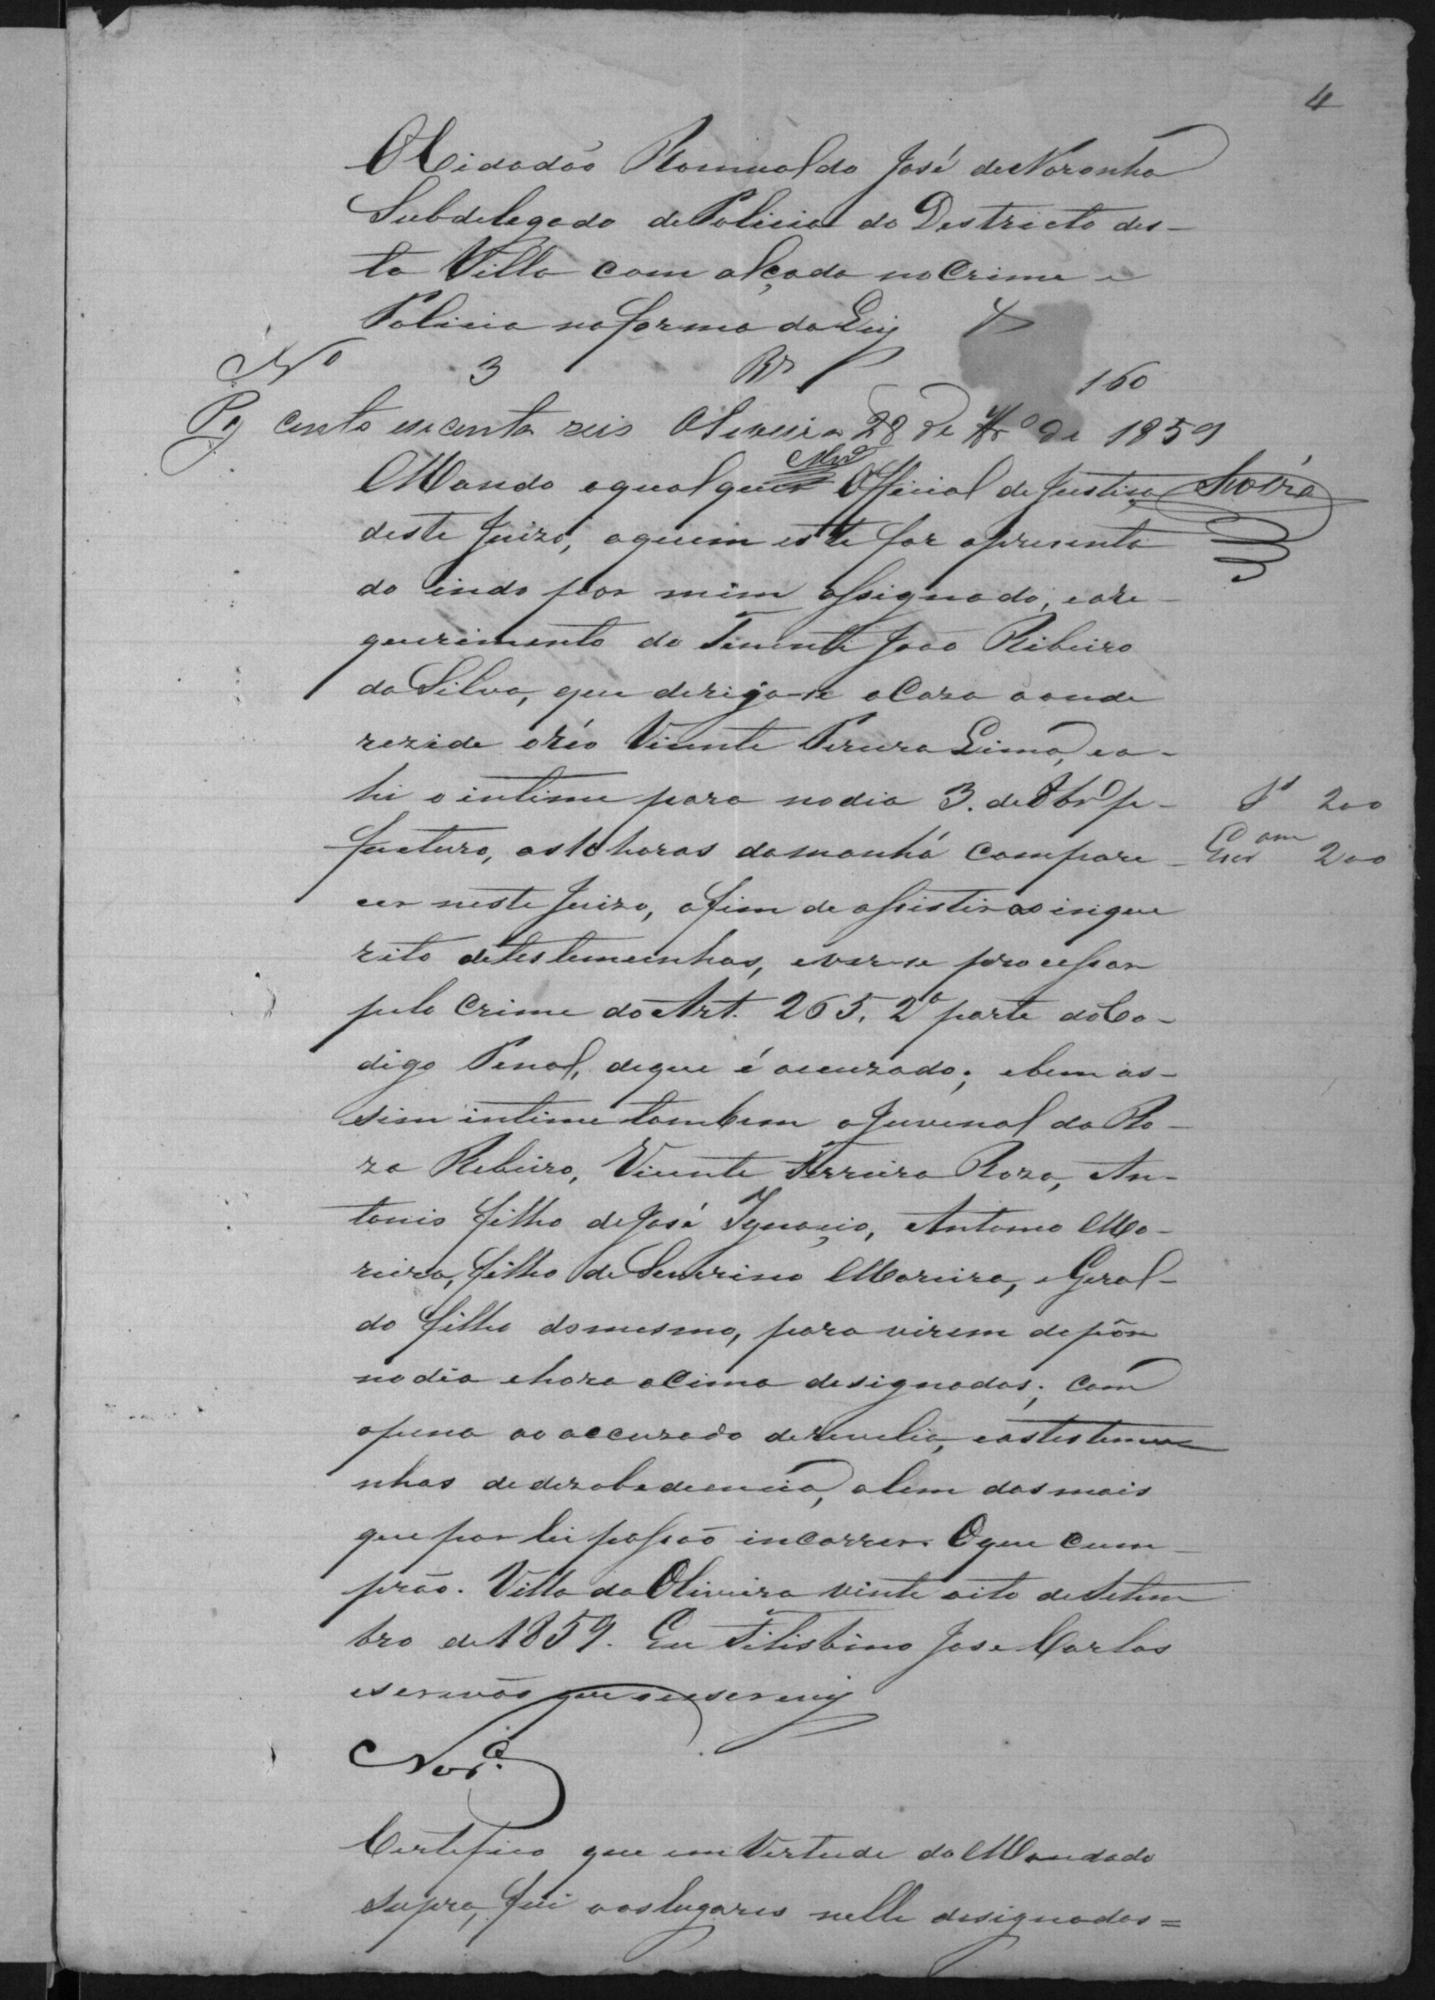 4
O Cidadão Romualdo José de Noronha
Subdelegado de Policia do Destricto des-
ta Villa com alçada no Crime e
Policia na forma da Ley
No 3 Rs 160
Pg cento e secenta reis Oliveira 28 de 7bro de 1859
Mando a qualquer Official de Justiça
deste Juizo, a quem este for apresenta
do indo por mim assignado, e a re-
querimento do Tenente João Ribeiro
da Silva, que derija-se a Caza aonde
rezide o réo Vicente Pereira Lima, e a-
hi o intime para no dia 3. de 8bro p.
fucturo, as 10 horas da manhã compare-
cer neste Juizo, afim de assistir ao inque
rito de testemunhas, e ver-se processar
pelo Crime do Art. 265, 2a parte do Co-
digo Penal, de que é accuzado; e bem as-
sim intime tambem a Juvenal da Ro-
za Ribeiro, Vicente Ferreira Roza, An-
tonio filho de José Ignaçio, Antonio Mo-
reira, filho de Severino Moreira, e Geral-
do filho do mesmo, para virem depôr
no dia e hora acima designados; com
a pena ao accuzado de revelia, e as testemu
nhas de dezobediencia, alem das mais
que por lei possão incorrer. O que cum-
prão. Villa da Oliveira vinte oito de Setem
bro de 1859. Eu Felisbino Jose Carlos
escrivão que o escrevy
Nor.a
Sa 200
200
Certefico que em Vertude do Mandado
supra, fui aos lugares nelle designados=